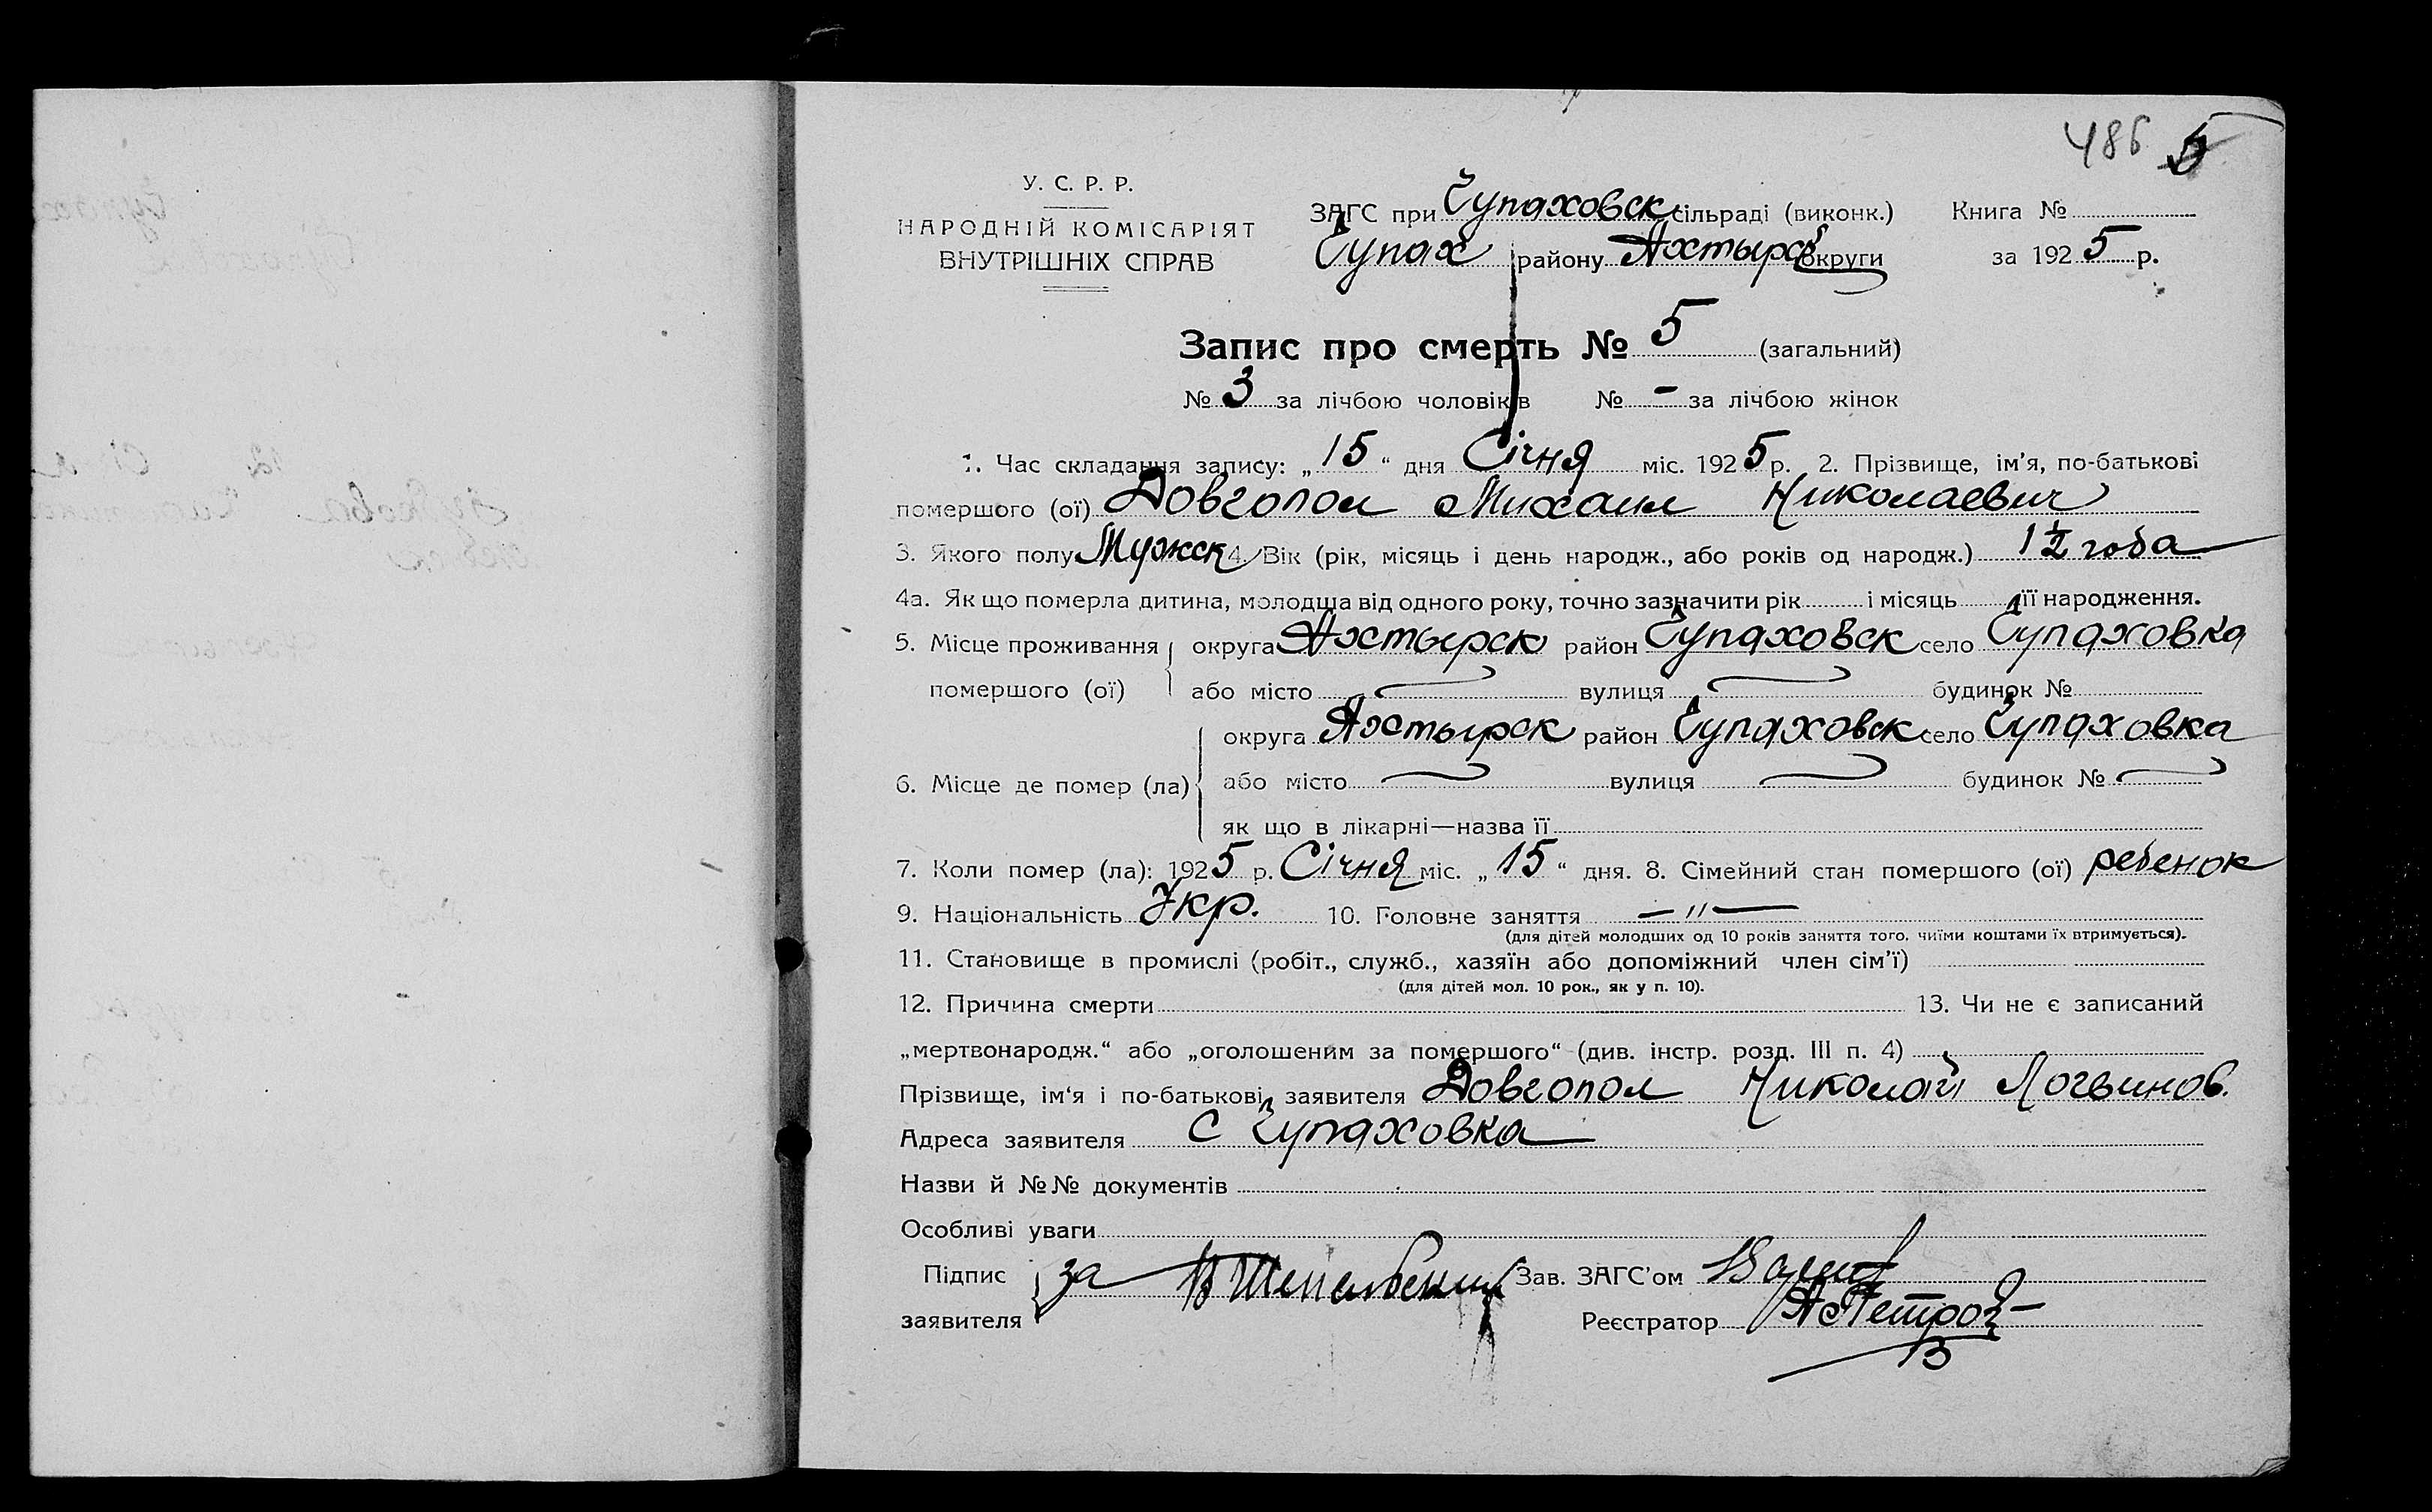 486 5
У. С. Р. Р.
НАРОДНІЙ КОМІСАРІЯТ
ВНУТРІШНІХ СПРАВ
ЗАГС при Чупаховск сільраді (виконк.) Книга №
Чупах району Ахтырс округи за 1925 р.
Запис про смерть № 5 (загальний)
№ 3 за лічбою чоловіків № - за лічбою жінок
1. Час складання запису: „15“ дня Січня міс. 1925 р. 2. Прізвище, ім'я, по-батькові
помершого (ої) Довгопол Михаил Николаевич
3. Якого полу Мужск 4. Вік (рік, місяць і день народж., або років од народж.) 1 1/2 года
4а. Як що померла дитина, молодша від одного року, точно зазначити рік і місяць її народження.
5. Місце проживання округа Ахтырск район Чупаховск село Чупаховка
помершого (ої) або місто вулиця будинок №
округа Ахтырск район Чупаховск село Чупаховка
6. Місце де помер (ла) або місто вулиця будинок №
як що в лікарні—назва її
7. Коли помер (ла): 1925 р. Січня міс. „15“ дня. 8. Сімейний стан помершого (ої) ребенок
9. Національність Укр. 10. Головне заняття — " —
(для дітей молодших од 10 років заняття того, чиїми коштами їх втримується).
11. Становище в промислі (робіт., служб., хазяїн або допоміжний член сім'ї)
(для дітей мол. 10 рок., як у п. 10).
12. Причина смерти 13. Чи не є записаний
„мертвонародж.“ або „оголошеним за помершого“ (див. інстр. розд. III п. 4)
Прізвище, ім'я і по-батькові заявителя Довгопол Николай Логвинов.
Адреса заявителя С Чупаховка
Назви й №№ документів
Особливі уваги
Підпис за Зав. ЗАГС'ом
заявителя Реєстратор